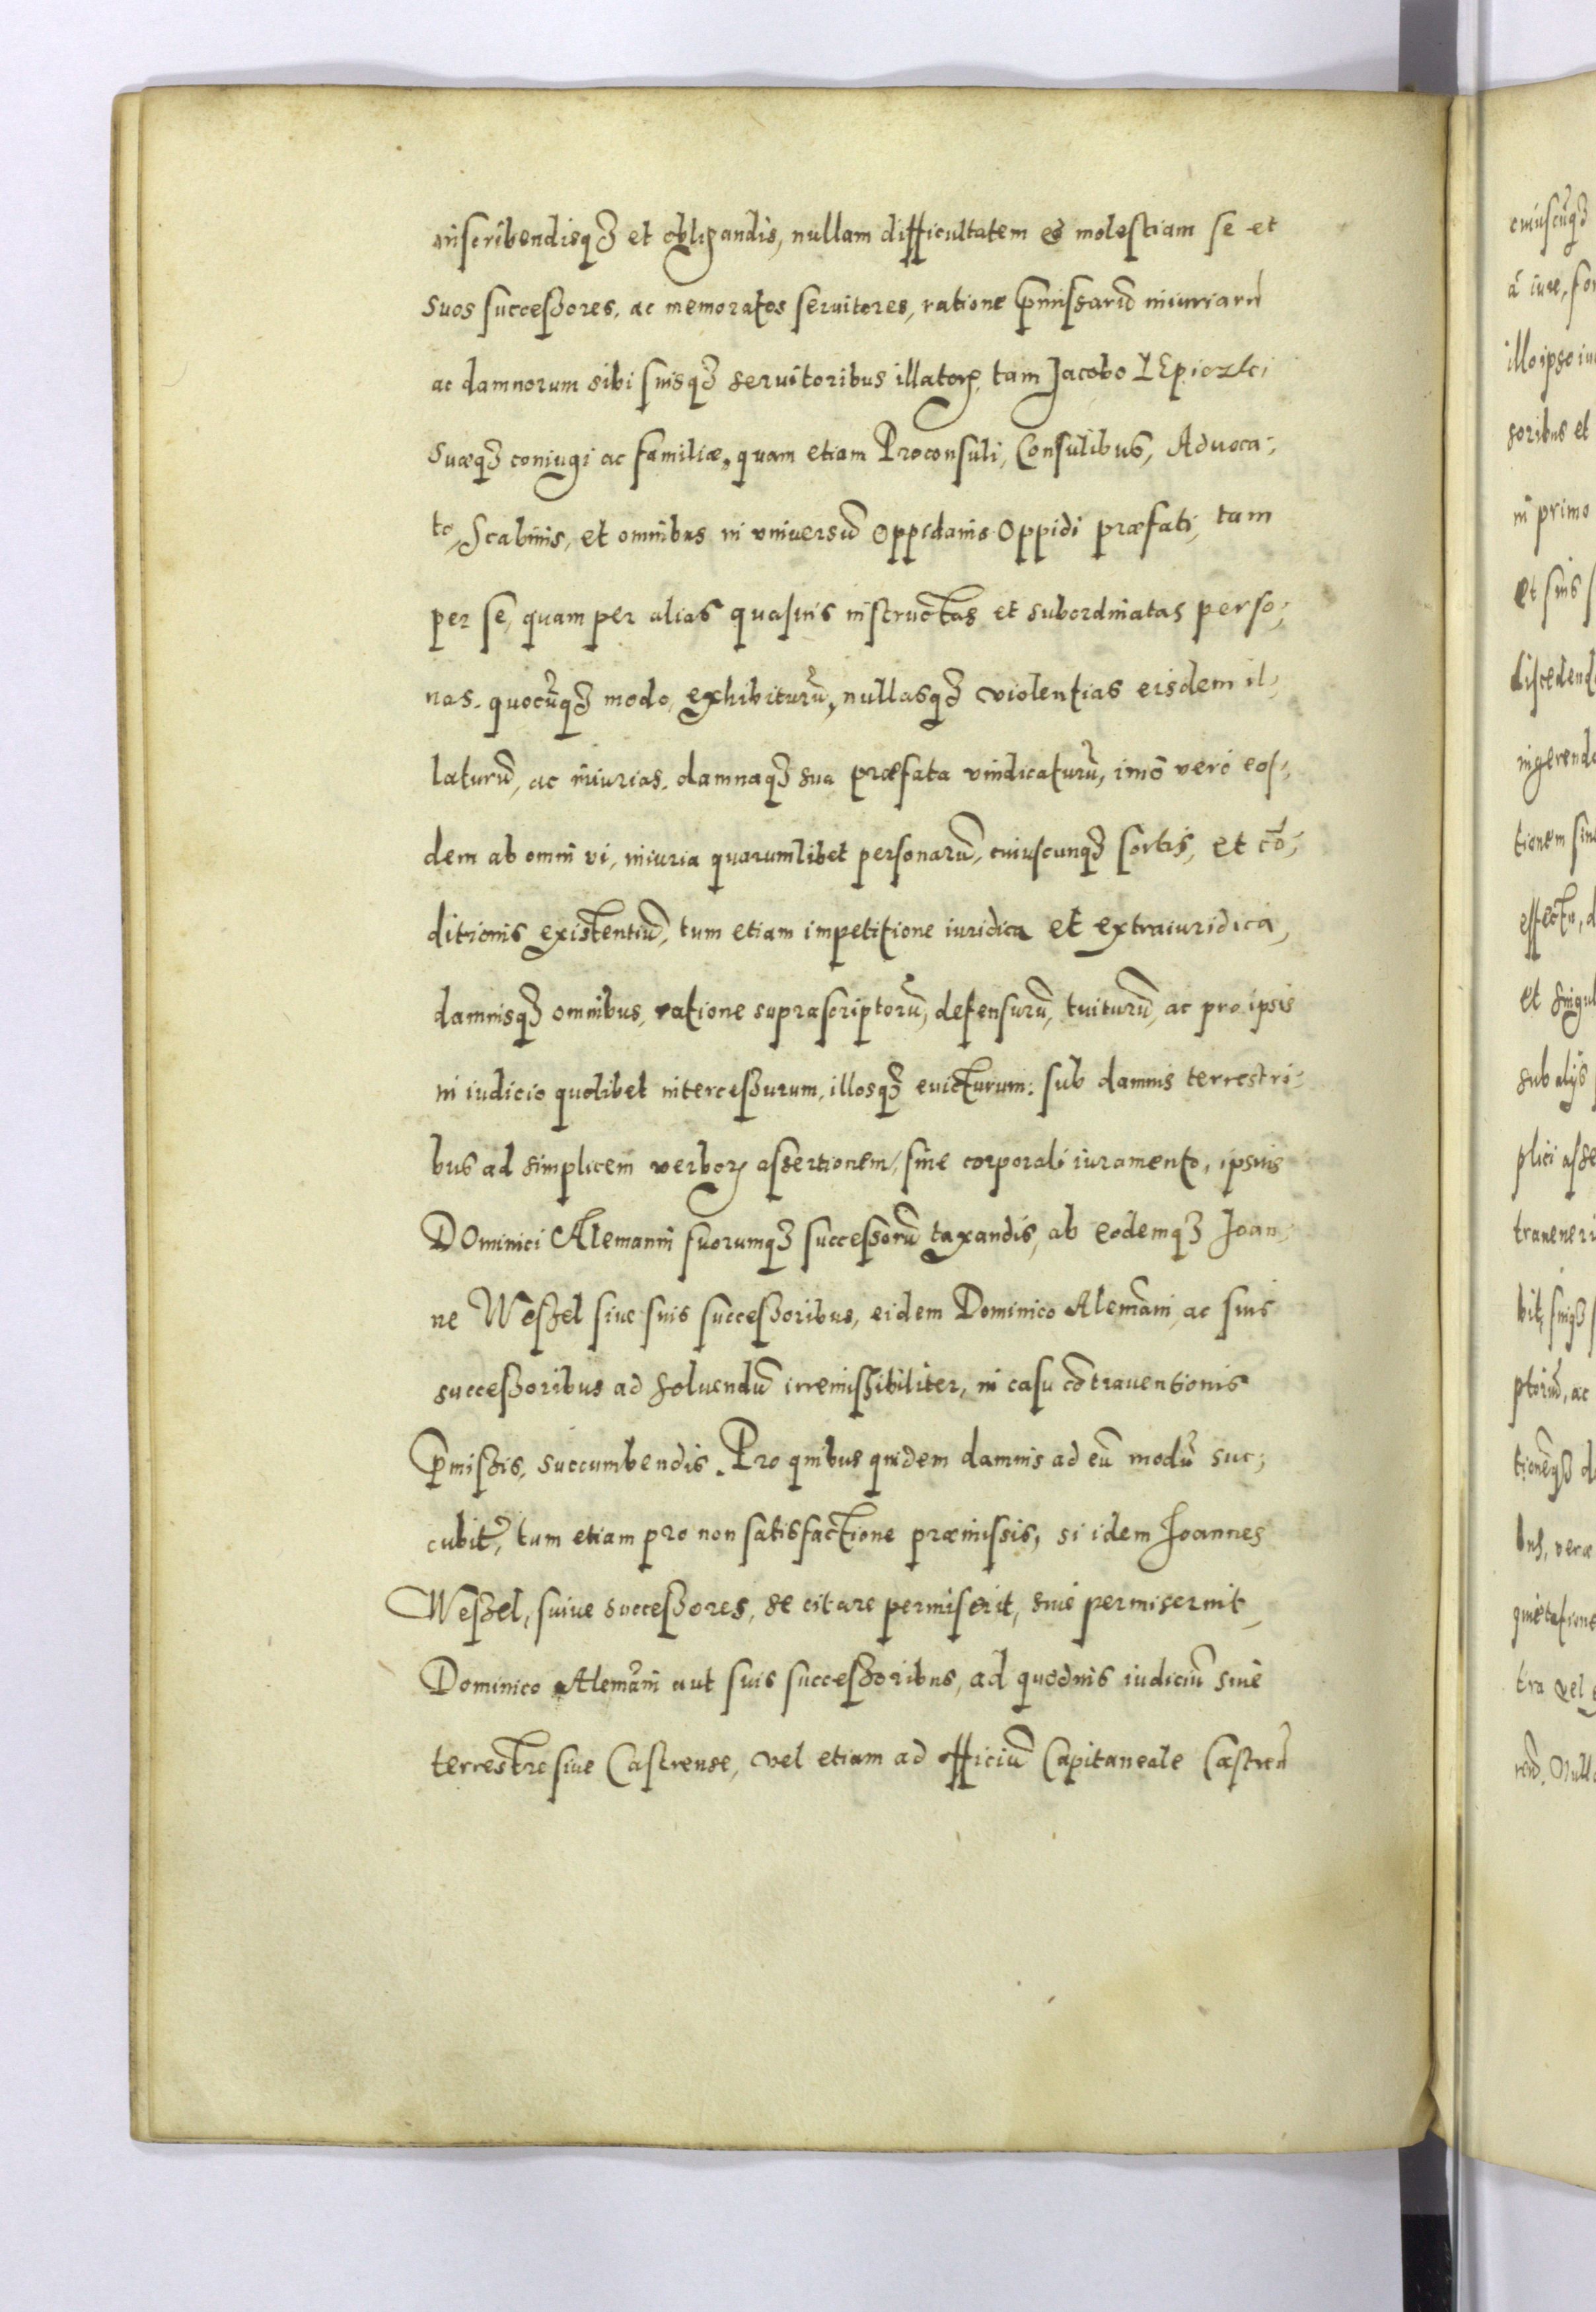 inscribendisqȝ et obligandis, nullam difficultatem et molestiam se et
suos successores, ac memoratos seruitores, ratione p̄missarũ iniuriarũ
ac damnorum sibi suisqȝ seruitoribus illatorꝝ, tam Jacobo
suæqȝ coniugi ac familiæ, quam etiam Proconsuli, Consulibus, Aduoca;
to, Scabinis, et omnibus in vniversũ Oppidanis Oppidi præfati, tam
per se, quam per alias quasuis instructas et subordinatas perso;
nas, quocũqȝ modo, exhibiturũ, nullasqȝ violentias eisdem il;
laturũ, ac iniurias, damnaqȝ sua præfata vindicaturũ, imò verò eos;
dem ab omni vi, iniuria quarumlibet personarũ, cuiuscunqȝ sortis, et cõ;
ditionis existentiũ, tum etiam impetitione iuridica et extraiuridica,
damnisqȝ omnibus, ratione suprascriptorũ, defensurũ, tuiturũ, ac pro ipsis
in iudicio quolibet intercessurum, illosqȝ euicturum: sub damnis terrestri;
bus ad simplicem verborꝝ assertionem, sine corporali iuramento, ipsius
DOminici Alemanni suorumqȝ successorũ taxandis, ab eodemqȝ Joan;
ne Weszel siue suis successoribus, eidem Dominico Alemãni, ac suis
successoribus ad soluendũ irremissibiliter, in casu cõtrauentionis
p̄missis, succumbendis. Pro quibus quidem damnis ad eũ modũ suc;
cubit̃, tum etiam pro non satisfactione præmissis, si idem Joannes
Weszel, suiue successores, se citare permiserit, siue permiserint,
Dominico Alemãni aut suis successoribus, ad quoduis iudiciũ siue
terrestre siue Castrense, vel etiam ad officiũ Capitaneale Castreñ
cuiuscũqȝ
à iure, for
illo ipso iu
soribus et
in primo
et suis s
discedend
ingerend
tionem sin
effectu, d
et singul
sub alijs
plici asse
traueneri
bit, suiqȝ
ptorũ, ac
tionẽqȝ d
bus, veræ
quietation
tra vel
Null